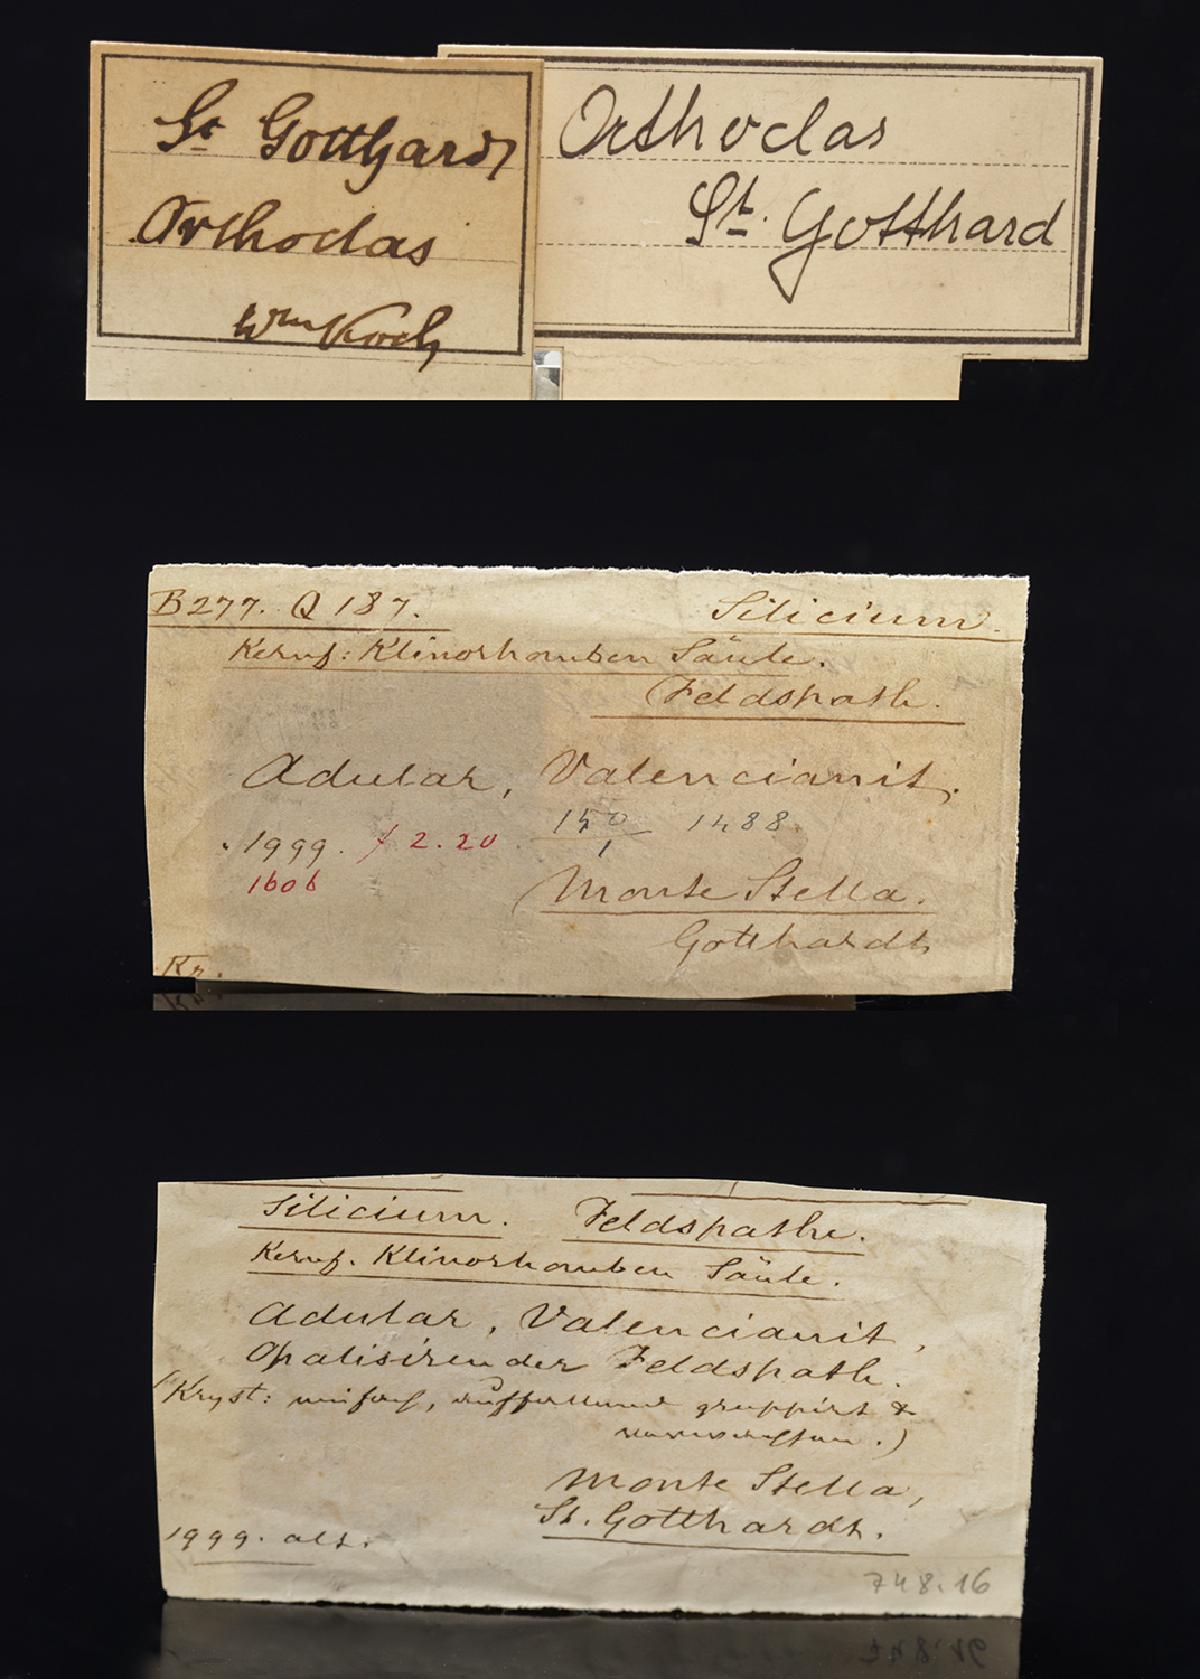 St Gotthard
Orthoclas
Wm Koch
Orthoclas
St. Gotthard
B277. Q 187.
Silicium.
Kernf: Klinorhomben Säule.
(Feldspath.
Adular, Valencianit.
150 1488.
1
1999. f 2.20
1606
Monte Stella.
Gotthardt
Kr.
Silicium. Feldspathe.
Kernf. Klinorhomben Säule.
Adular, Valencianit,
Opalisirender Feldspath.
(Kryst: einfach, auffallend gruppirt &
verwachsen.)
Monte Stella,
St. Gotthardt.
1999. alt.
748.16